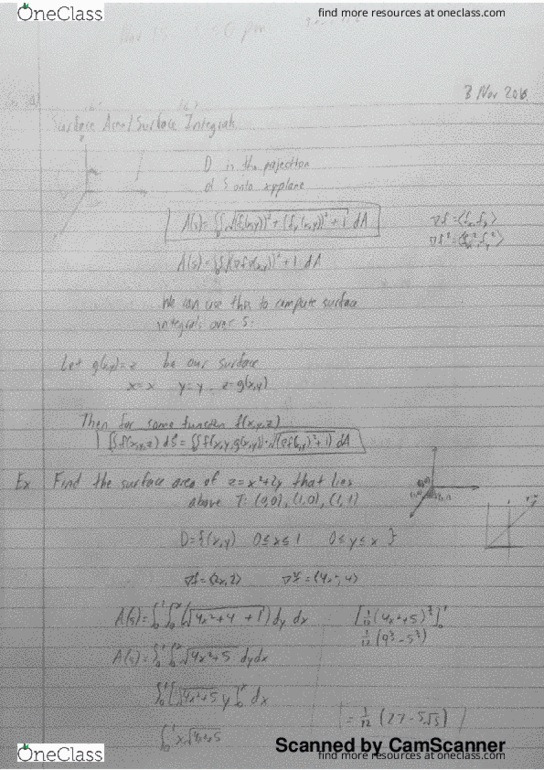 OneClass
find more resources at oneclass.com
3 Nov 2018
Surface Area/Surface Integrals
D is the projection
of S onto xyplane
A(s)=∬√(fx(x,y))²+(fy(x,y))²+1 dA
∇f=⟨fx,fy⟩
∇f²=⟨fx²,fy²⟩
A(s)=∬√(∇f(x,y))²+1 dA
We can use this to compute surface
integrals over S.
Let g(x,y)=z be our surface
x=x y=y z=g(x,y)
Then for some function f(x,y,z)
∬f(x,y,z) dS=∬f(x,y,g(x,y))·√(∇f(x,y)²+1) dA
Ex Find the surface area of z=x²+2y that lies
above T: (0,0), (1,0), (1,1)
D={(x,y) 0≤x≤1 0≤y≤x}
∇f=⟨2x,2⟩ ∇f²=⟨4x²,4⟩
A(s)=∫₀¹∫₀ˣ(√4x²+4+1)dy dx
[1/12(4x²+5)^3/2]₀¹
1/12(9^3/2-5^3/2)
A(s)=∫₀¹∫₀ˣ√4x²+5 dydx
∫₀¹[√4x²+5 y]₀ˣ dx
=1/12(27-5√5)
∫₀¹x√4x²+5
Scanned by CamScanner
OneClass
find more resources at oneclass.com